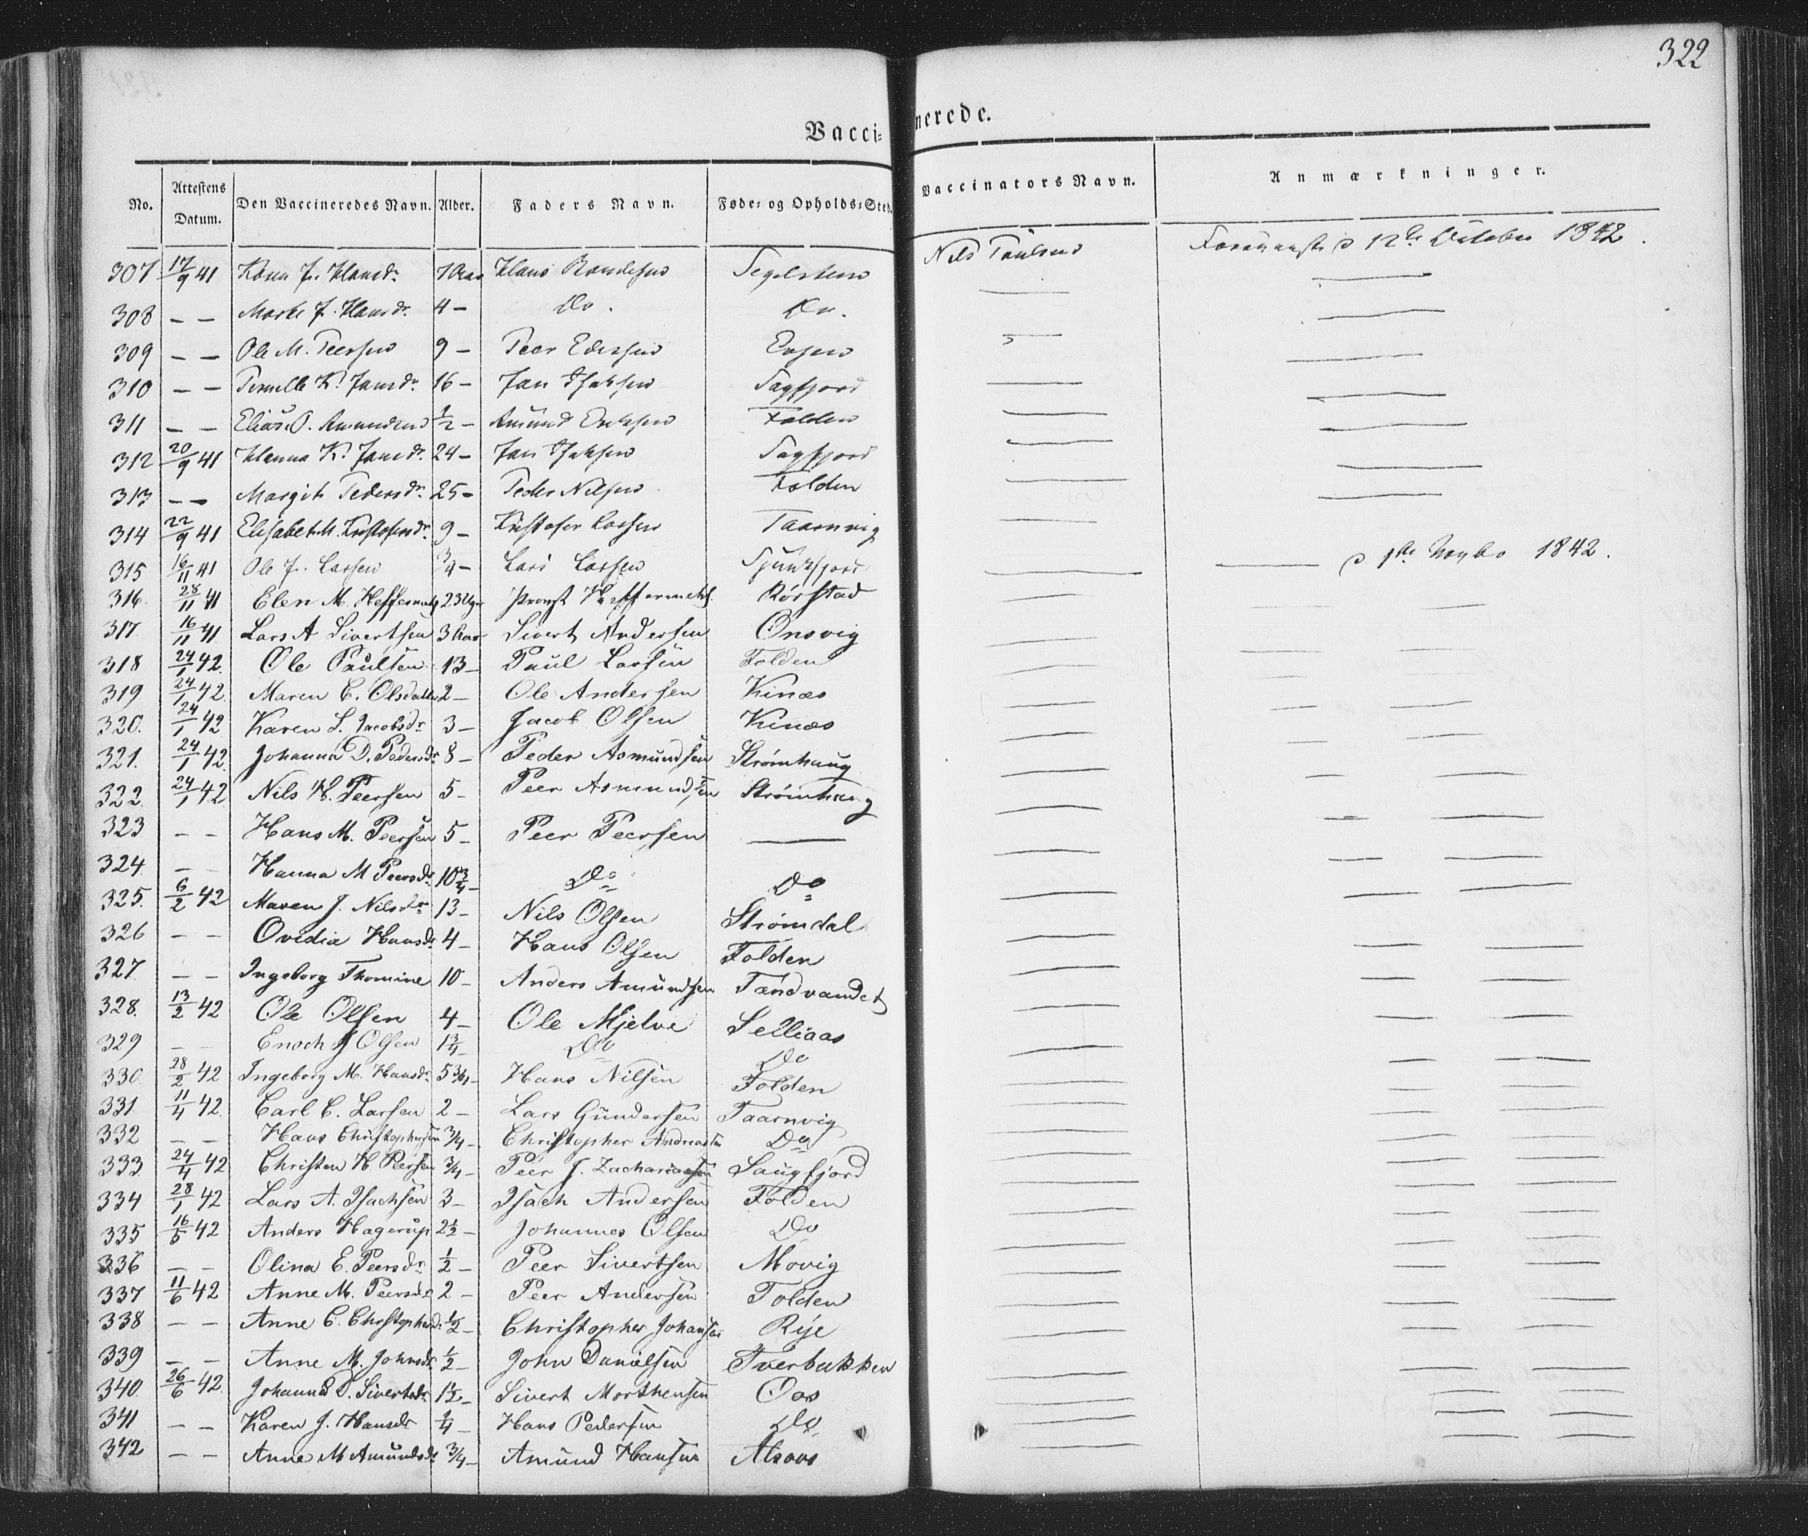 322
Vaccinerede.
No. Attestens Datum. Den Vaccineredes Navn. Alder. Faders Navn. Føde- og Opholds-Sted. Vaccinators Navn. Anmærkninger.
307 17/9 41 J. Hansdr. Hans Nils 12te October 1842.
308 — — J. Hansdr. 4 — Do. Do.
309 — — Ole M. Peersen 9 — Peer
310 — — K. Jansdr. 16 — Jan Sagfjord
311 — — Elias O. Amundsen 1/2 — Amund Eriksen Folden
312 20/9 41 Hanna K. Jansdr. 24 — Jan Sagfjord
313 — — Margit Pedersdr. 25 — Peder Nilsen Folden
314 22/9 41 Elisabet M. Kristofersdr. 9 — Kristofer Larsen Taarnvig
315 16/11 41 Ole J. Larsen 3/4 — Lars Larsen 1842.
316. 28/11 41 Elen M. 23 Provst Rørstad
317. 16/11 41 Lars A Sivertsen 3 Aar Sivert Andersen Onsvig
318 24/1 42. Ole Paulsen 13 — Paul Larsen Folden
319 24/1 42. Maren C. Olsdatter 2 — Ole Andersen Kinæs
320. 24/1 42 Karen S. Jacobsdr. 3 — Jacob Olsen Kinæs
321. 24/1 42. Johanna D. Pedersdr 8 — Peder Asmundsen Strømhaug
322. 24/1 42 Nils H. Peersen 5 — Peer Asmundsen Strømhaug
323 — — Hans M. Peersen 5 — Peer Peersen —
324. — — Hanna M Peersdr. 10 3/4 — Do Do
325. 6/2 42 Maren J. Nilsdr. 13 — Nils Olsen Strømdal
326 — — Ovidia Hansdr 4 — Hans Olsen Folden
327. — — Ingeborg Thomine 10 — Anders Amundsen Tændvandet
328. 13/2 42 Ole Olsen 4 — Ole Mjelve Selliaas
329 — — Enoch J Olsen 1 3/4 Do Do
330. 28/2 42 Ingeborg M. Hansdr. 5 3/4 — Hans Nilsen Folden
331 11/4 42. Carl C. Larsen 2 — Lars Gundersen Taarnvig
332 — — Hans Christophersen 3/4 — Christopher Andreasen Do
333 24/4 42 Christen H Peersen 3/4 — Peer J. Zachariassen Saugfjord
334 28/1 42 Lars A. Isachsen 3 — Isach Andersen Folden
335 16/5 42 Anders Hagerup 2 1/2 — Johannes Olsen Do
336 — — Olina E. Peersdr. 1/2 — Peer Sivertsen Movig
337 11/6 42 Anne M. Peersdr 2 — Peer Andersen Folden
338 — — Anne C. Christophersdr. 1/2 — Christopher Johansen Røje
339 — — Anne M. Johnsdr 1/2 — John Danielsen Tverbakken
340. 26/6 42. Johanna D. Sivertsdr 1 1/2 — Sivert Morthensen Oos
341 — — Karen J. Hansdr 1/4 — Hans Pedersen Do
342 — — Anne M Amundsdr 3/4 — Amund Hansen Alsoos